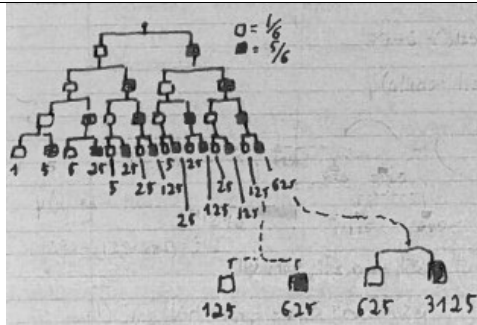 □= 1/6
■= 5/6
1 5 5 25 25 5 25
5 25 125 25 125 625
25 125 125
125 625 625 3125